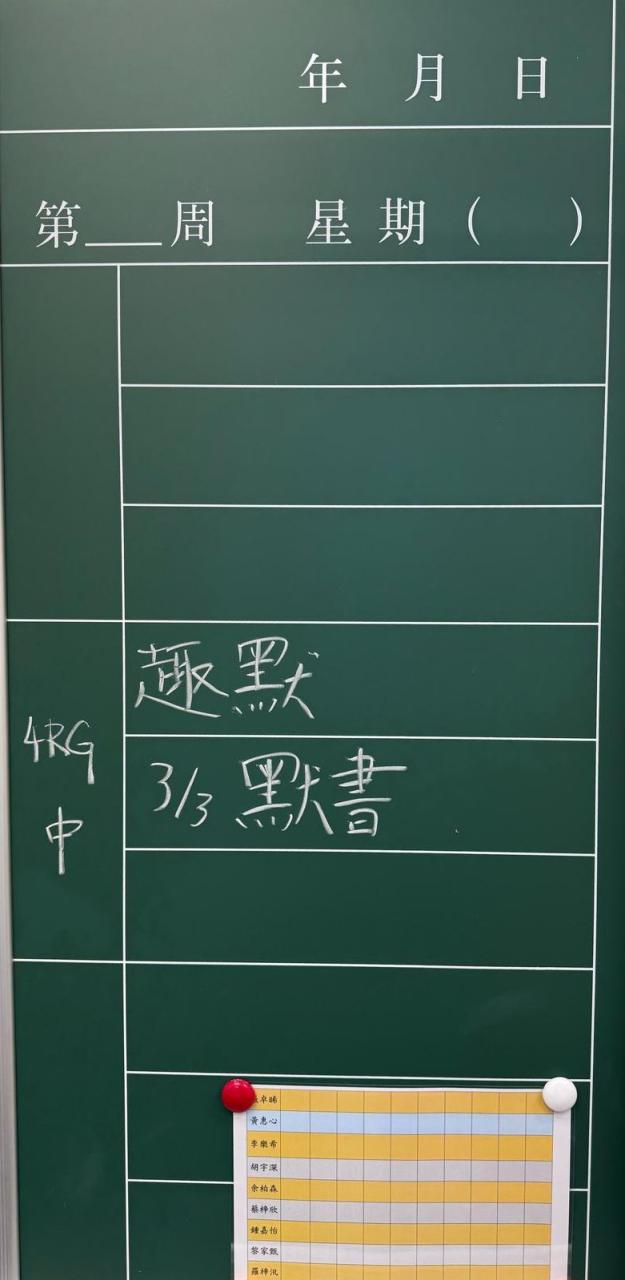 年 月 日
第___周 星期( )
趣默
4RG
中
3/3 默書
卓晞
黃惠心
李樂希
胡宇深
余柏森
蔡梓欣
鍾嘉怡
黎家甄
羅梓汎